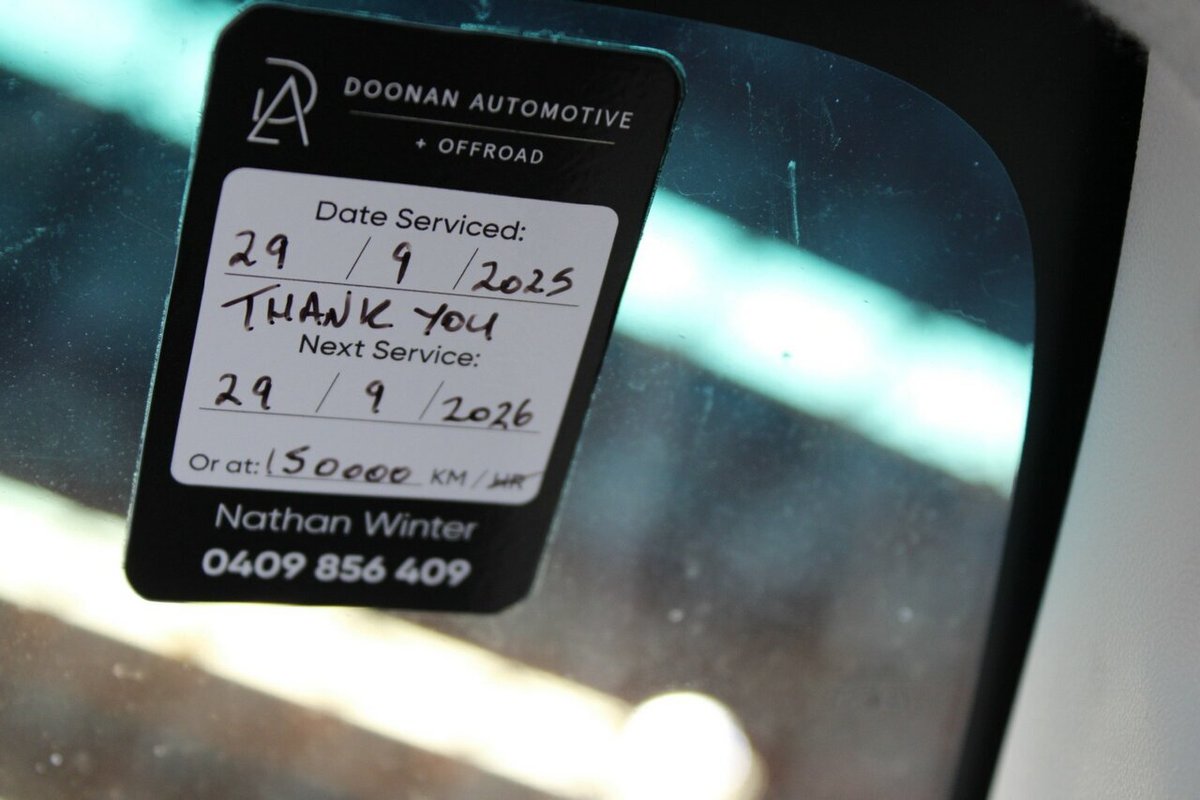 DA
DOONAN AUTOMOTIVE
+ OFFROAD
Date Serviced:
29 / 9 / 2025
THANK YOU
Next Service:
29 / 9 / 2026
Or at: 150000 KM / HR
Nathan Winter
0409 856 409